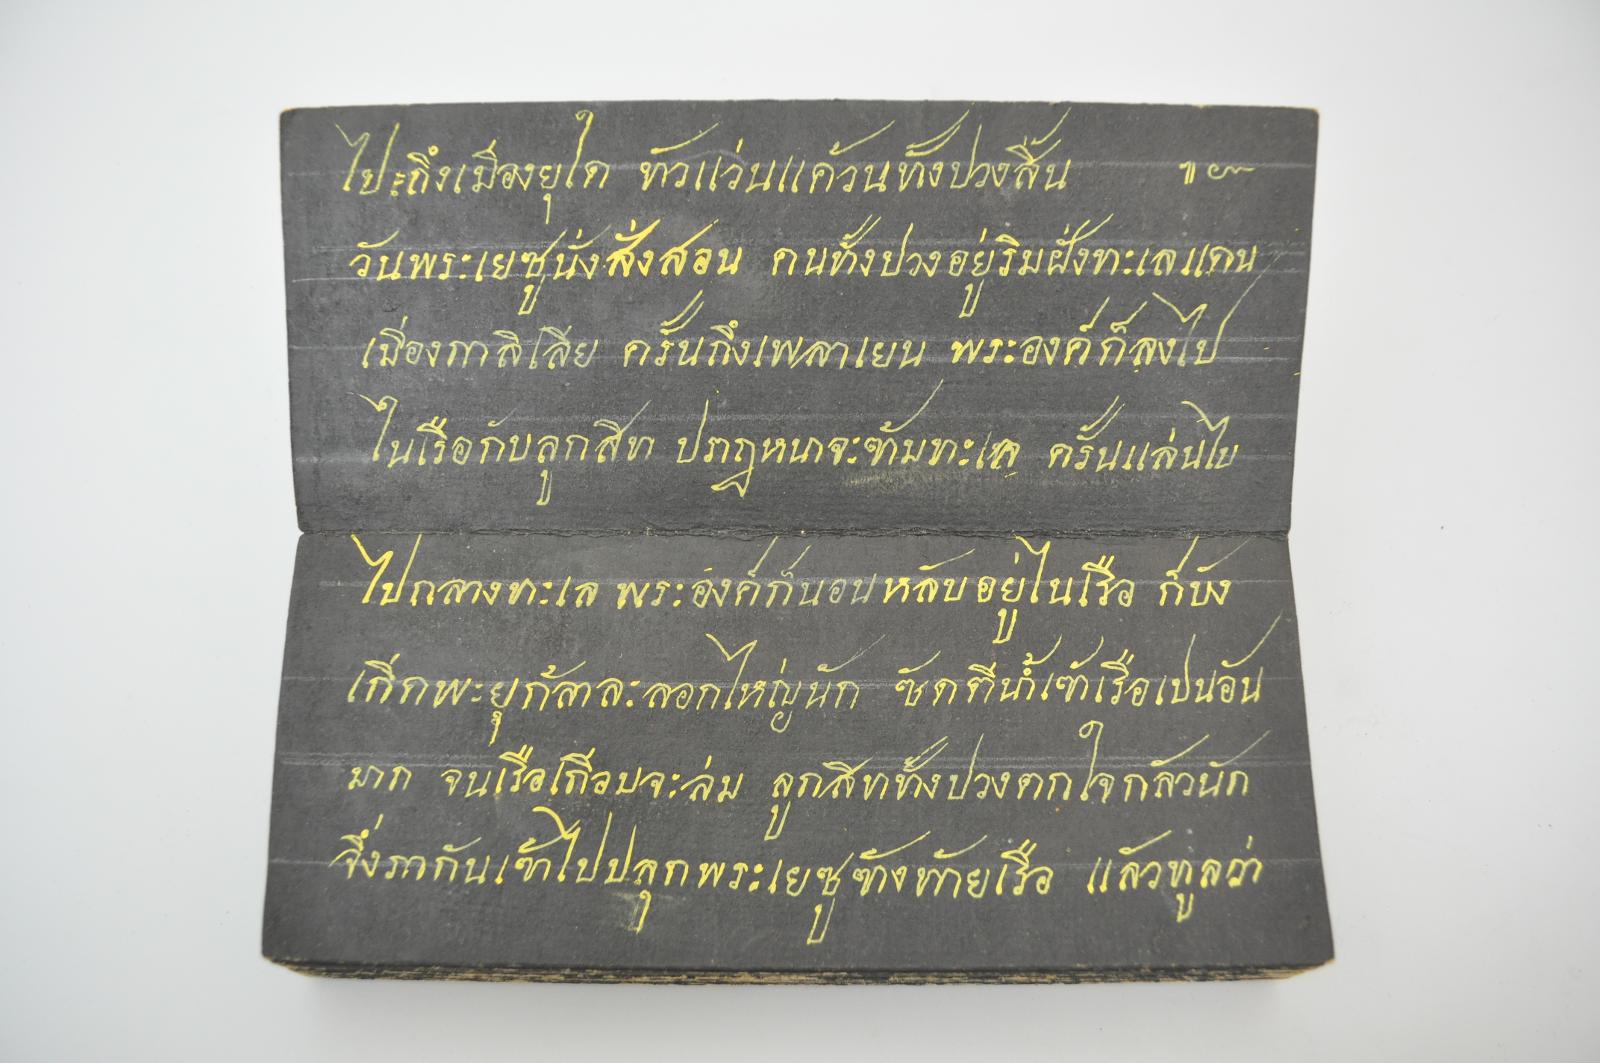 ไปะถึงเมืองยุโด ทัวแว่นแค้วนทังปวงสิ้น ๚ะ๛
วันพระเยซูนั่งสั่งสอน คนทั้งปวงอยู่ริมฝั่งทะเลแดน
เมืองกาลิเสีย ครั้นถึงเพลาเยน พระองค์ก็ลงไป
ไนเรือกับลูกสิท ปราฏหนาจะฃ้ามทะเล ครั้นแล่นไป
ไปกลางทะเล พระองค์ก็นอนหลับอยู่ไนเรือ ก็บัง
เกิดพะยุกัสาละลอกไหญ่นัก ซัดตีน้ำเฃ้าเรือเปนอัน
มาก จนเรือเกือบจะล่ม ลูกสิททั้งปวงตกใจกลัวนัก
จึ่งภากันเฃ้าไปปลุกพระเยซูฃ้างท้ายเรือ แล้วทูลว่า